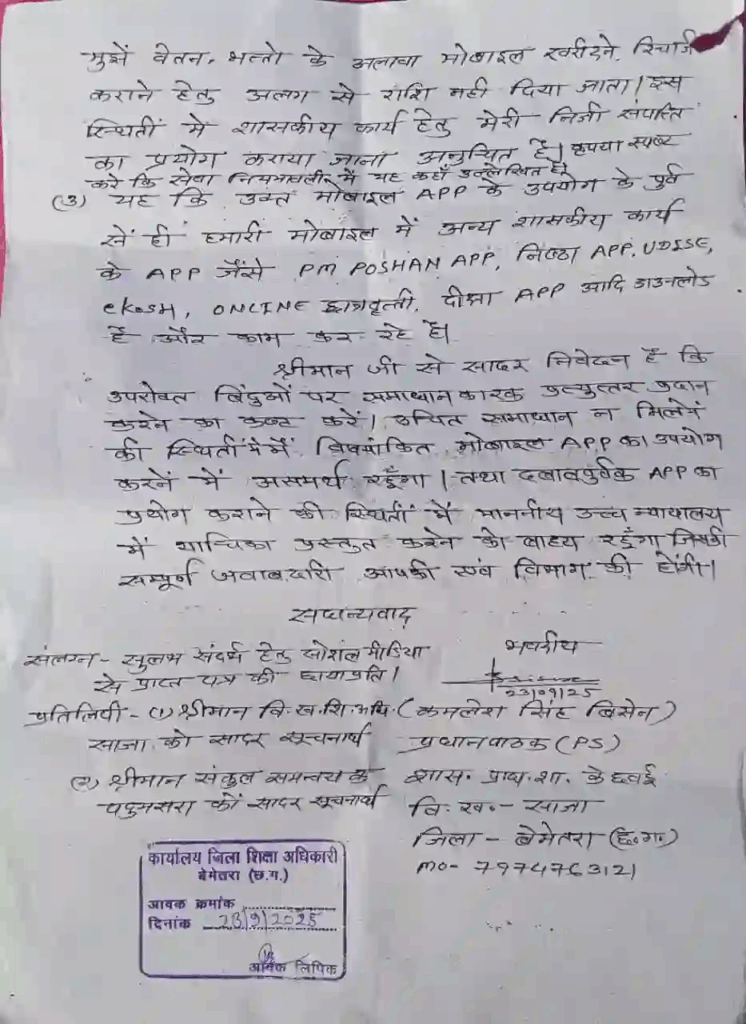 मुझे वेतन, भत्तो के अलावा मोबाइल खरीदने, रिचार्ज
कराने हेतु अलग से राशि नही दिया जाता। इस
स्थिती मे शासकीय कार्य हेतु मेरी निजी संपत्ति
का प्रयोग कराया जाना अनुचित है। कृपया स्पष्ट
करे कि सेवा नियमावली में यह कहाँ उल्लेखित है।
(3) यह कि उक्त मोबाइल APP के उपयोग के पूर्व
से ही हमारी मोबाइल में अन्य शासकीय कार्य
के APP जैसे PM POSHAN APP, निष्ठा APP, UDISE,
ekosh, ONLINE छात्रवृत्ती, दीक्षा APP आदि डाउनलोड
है और काम कर रहे है।
श्रीमान जी से सादर निवेदन है कि
उपरोक्त बिंदुओं पर समाधान कारक प्रत्युत्तर प्रदान
करने का कष्ट करें। उचित समाधान न मिलने
की स्थिती में मैं विषयांकित मोबाइल APP का उपयोग
करने में असमर्थ रहूँगा। तथा दबावपूर्वक APP का
प्रयोग कराने की स्थिती में माननीय उच्च न्यायालय
में याचिका प्रस्तुत करने को बाध्य रहूँगा जिसकी
सम्पूर्ण जवाबदारी आपकी एवं विभाग की होगी।
सधन्यवाद
संलग्न - सुलभ संदर्भ हेतु सोशल मीडिया
से प्राप्त पत्र की छायाप्रति।
भवदीय
23/09/25
प्रतिलिपी - (1) श्रीमान वि.ख.शि.अधि.
साजा को सादर सूचनार्थ
(2) श्रीमान संकुल समन्वयक
पदुमसरा को सादर सूचनार्थ
(कमलेश सिंह बिसेन)
प्रधानपाठक (PS)
शास. प्राथ. शा. केहवई
वि. ख. - साजा
जिला - बेमेतरा (छ.ग.)
mo- 7974763121
कार्यालय जिला शिक्षा अधिकारी
बेमेतरा (छ.ग.)
आवक क्रमांक
दिनांक 23/9/2025
आवक लिपिक